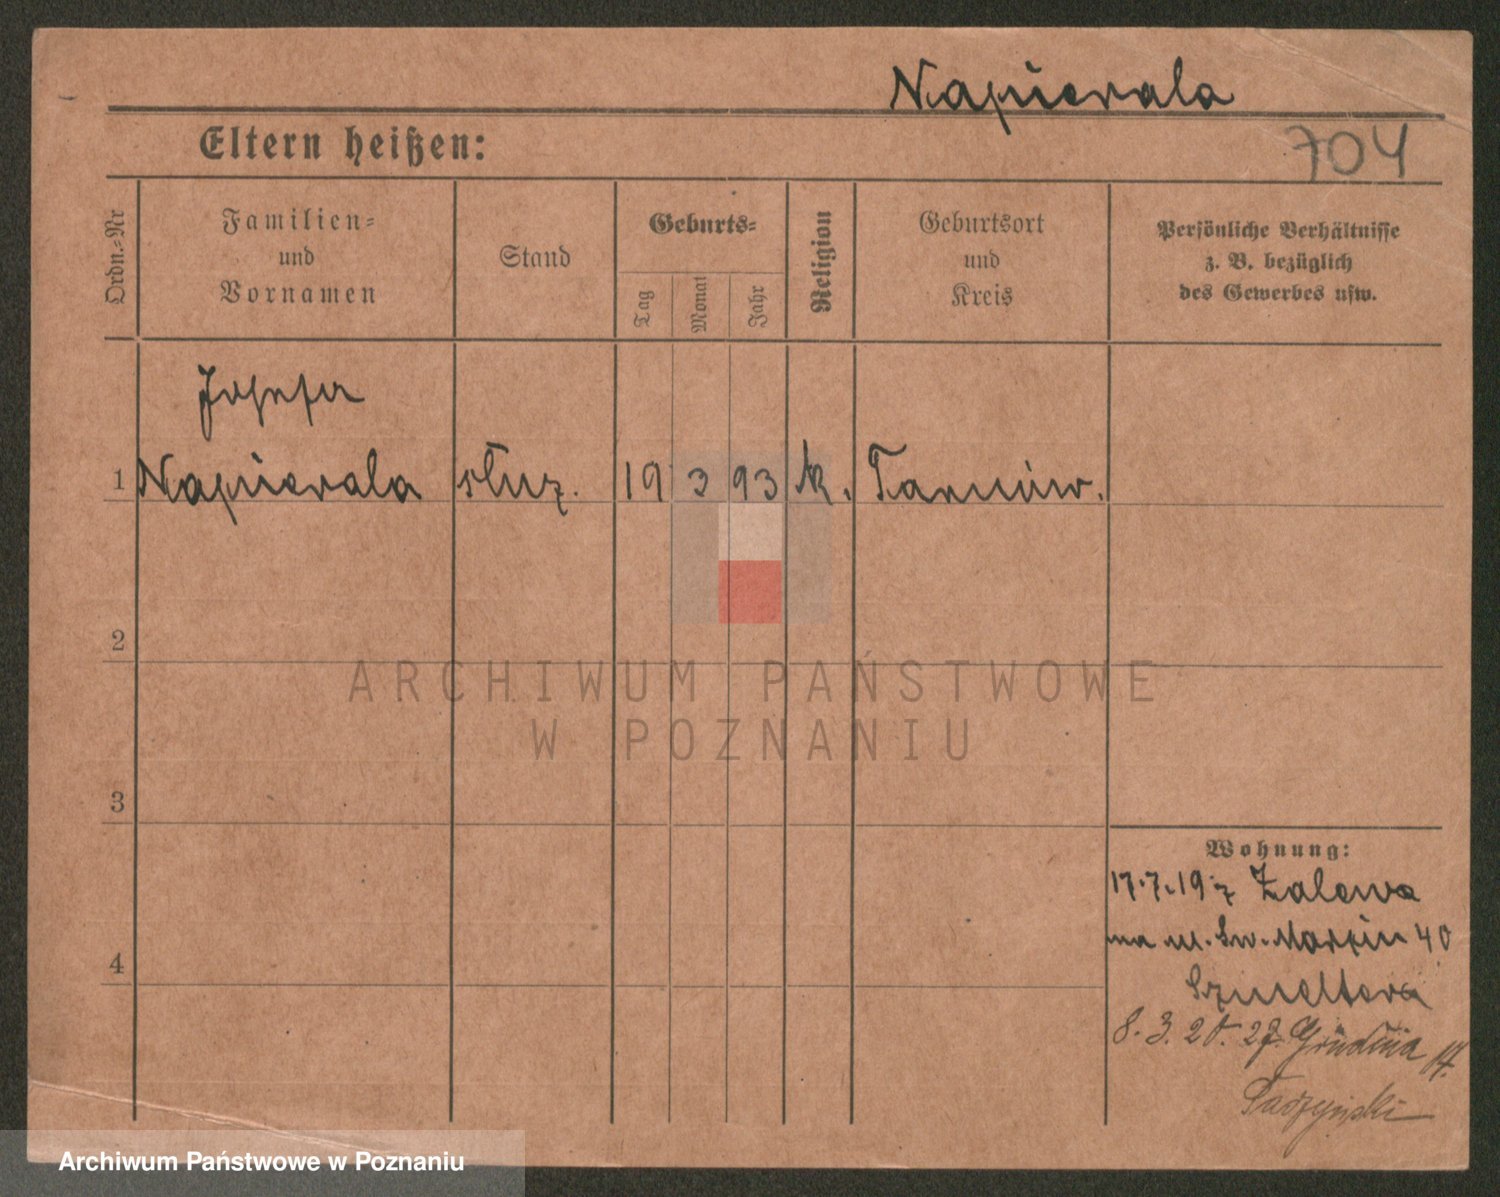 Napierala
Eltern heißen:
704
Ordn.=Nr
Familien=
und
Vornamen
Stand
Geburts=
Tag
Monat
Jahr
Religion
Geburtsort
und
Kreis
Persönliche Verhältnisse
z. B. bezüglich
des Gewerbes usw.
Josefa
1 Napierala służ. 19 3 93 k. Tarnów.
2
ARCHIWUM PAŃSTWOWE
W POZNANIU
3
Wohnung:
17.7.19 z Zalewa
na ul. Św. Marcin 40
4
8.3.20. 27 Grudnia 17.
Archiwum Państwowe w Poznaniu